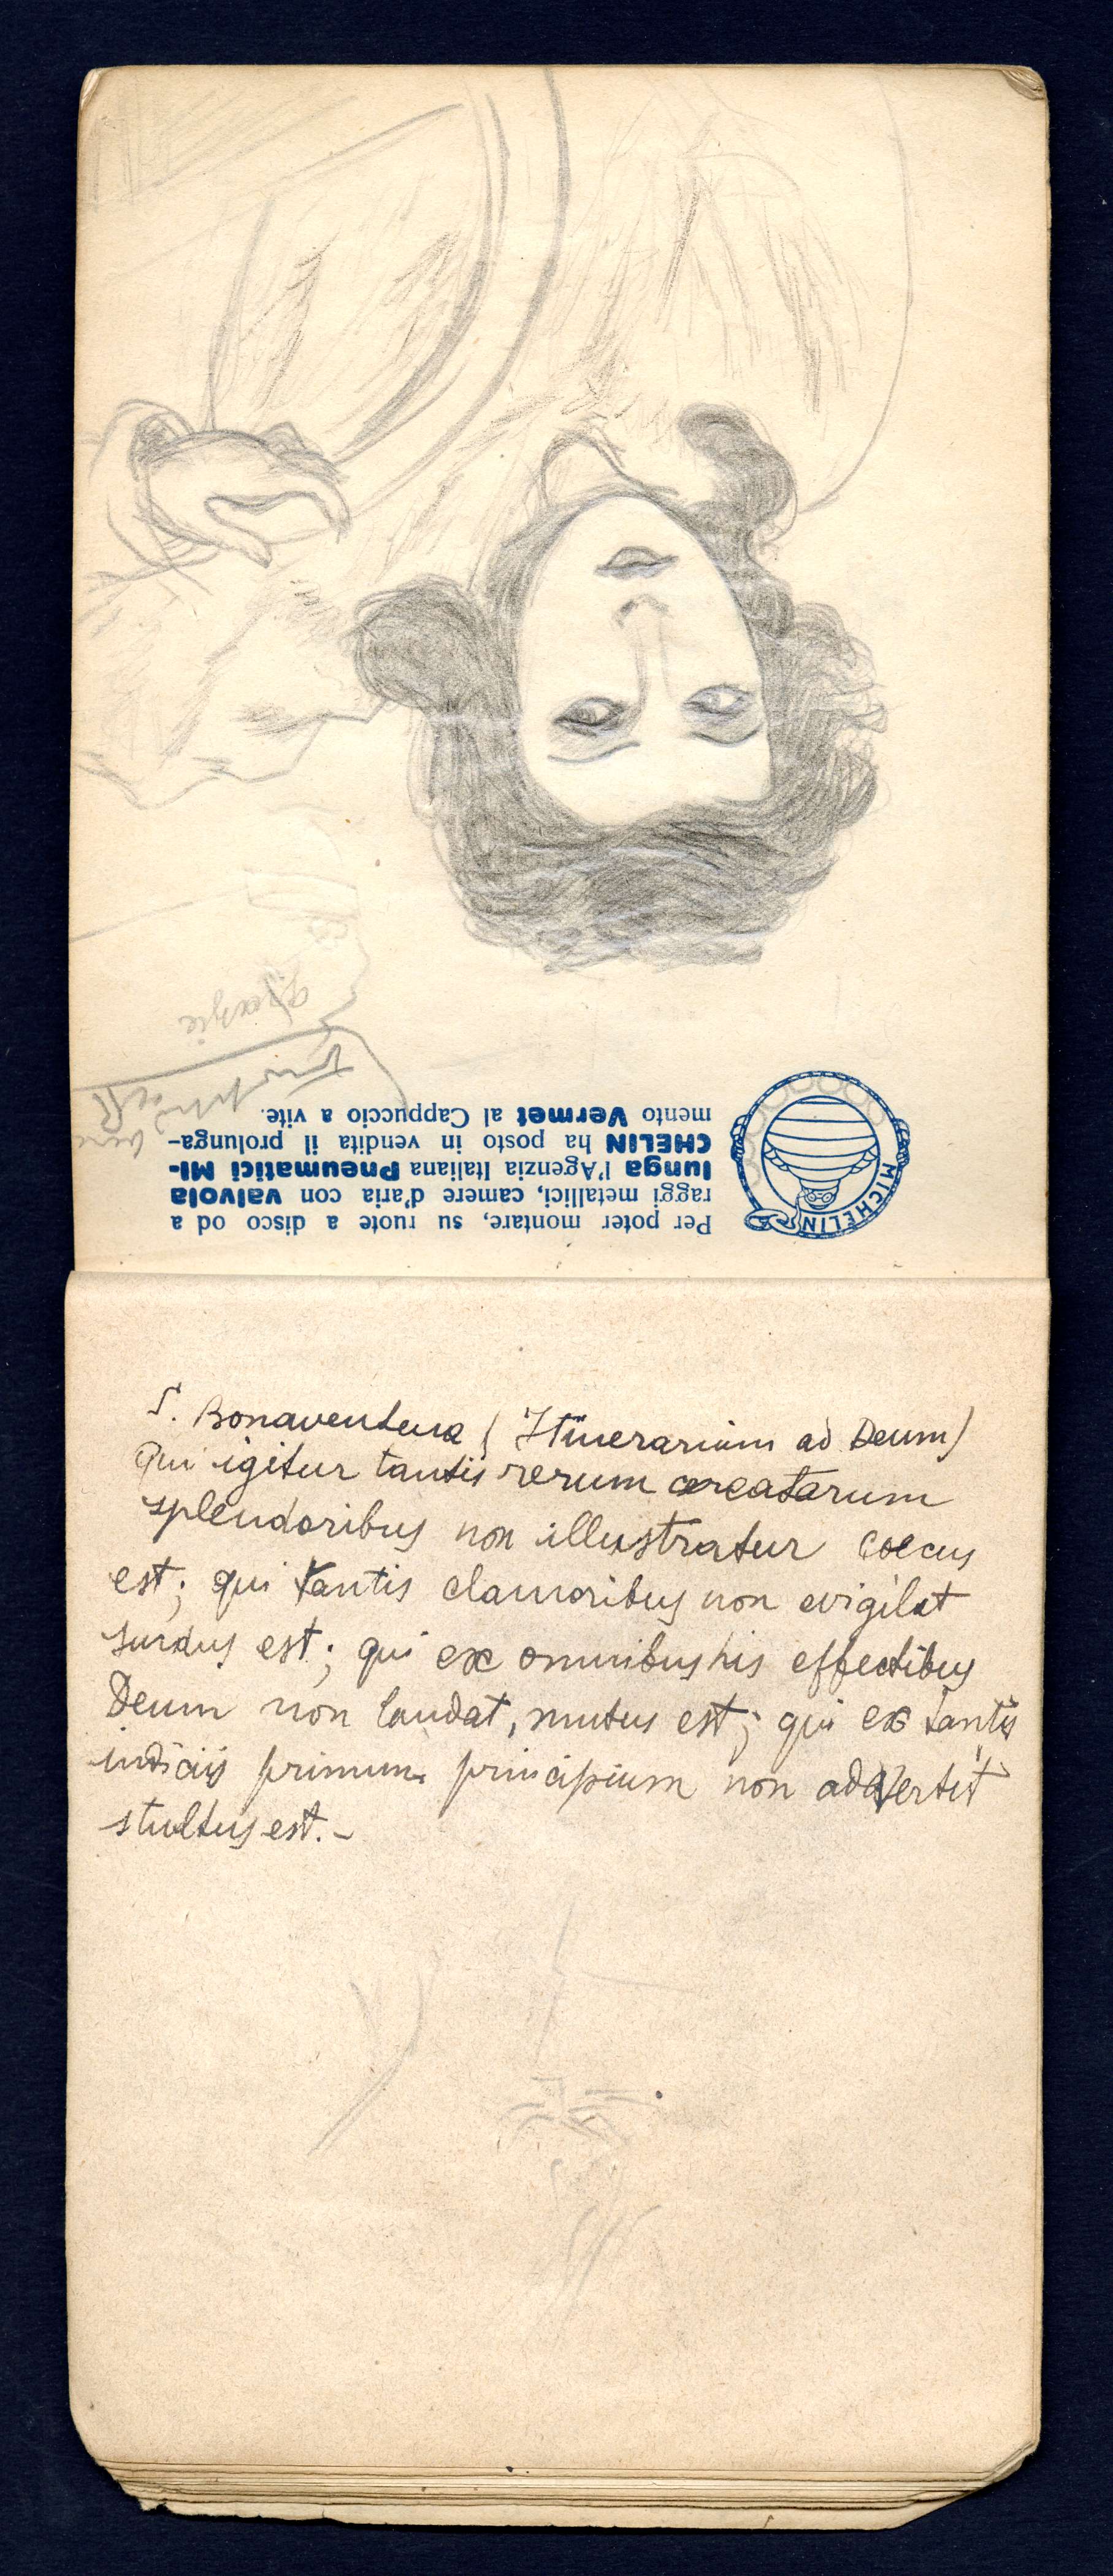 MICHELIN
Per poter montare, su ruote a disco od a
raggi metallici, camere d'aria con valvola
lunga l'Agenzia Italiana Pneumatici MI-
CHELIN ha posto in vendita il prolunga-
mento Vermet al Cappuccio a vite.
S. Bonaventura ( Itinerarium ad Deum)
Qui igitur tantis rerum creatarum
splendoribus non illustratur coecus
est; qui tantis clamoribus non evigilat
surdus est; qui ex omnibus his effectibus
Deum non laudat, mutus est; qui ex tantis
indiciis primum principium non advertit
stultus est.-